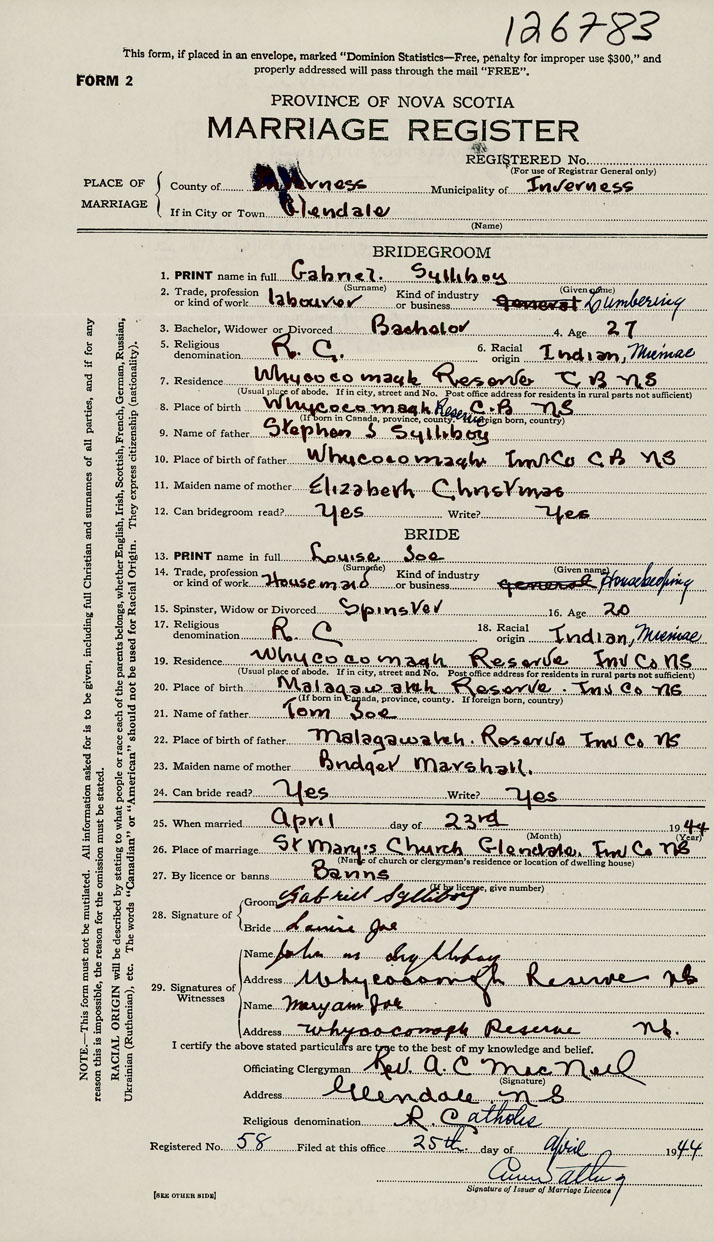 126783
This form, if placed in an envelope, marked "Dominion Statistics—Free, penalty for improper use $300," and
properly addressed will pass through the mail "FREE".
FORM 2
PROVINCE OF NOVA SCOTIA
MARRIAGE REGISTER
REGISTERED No.
(For use of Registrar General only)
PLACE OF MARRIAGE
County of Inverness Municipality of Inverness
If in City or Town Glendale
(Name)
BRIDEGROOM
1. PRINT name in full Gabriel. Sylliboy
(Surname) (Given name)
2. Trade, profession or kind of work labourer Kind of industry or business general Lumbering
3. Bachelor, Widower or Divorced Bachelor 4. Age 27
5. Religious denomination R. C. 6. Racial origin Indian, Micmac
7. Residence Whycocomagh Reserve C B NS
(Usual place of abode. If in city, street and No. Post office address for residents in rural parts not sufficient)
8. Place of birth Whycocomagh Reserve C.B NS
(If born in Canada, province, county. If foreign born, country)
9. Name of father Stephen S Sylliboy
10. Place of birth of father Whycocomagh Inv Co C B NS
11. Maiden name of mother Elizabeth Christmas
12. Can bridegroom read? Yes Write? Yes
BRIDE
13. PRINT name in full Louise Joe
(Surname) (Given name)
14. Trade, profession or kind of work Housemaid Kind of industry or business general Housekeeping
15. Spinster, Widow or Divorced Spinster 16. Age 20
17. Religious denomination R. C 18. Racial origin Indian, Micmac
19. Residence Whycocomagh Reserve Inv Co NS
(Usual place of abode. If in city, street and No. Post office address for residents in rural parts not sufficient)
20. Place of birth Malagawatch Reserve. Inv Co NS
(If born in Canada, province, county. If foreign born, country)
21. Name of father Tom Joe
22. Place of birth of father Malagawatch. Reserve Inv Co NS
23. Maiden name of mother Bridget Marshall.
24. Can bride read? Yes Write? Yes
25. When married April day of 23rd 1944
(Month) (Year)
26. Place of marriage St Mary's Church Glendale. Inv Co NS
(Name of church or clergyman's residence or location of dwelling house)
27. By licence or banns Banns
(If by license, give number)
28. Signature of
Groom Gabriell Sylliboy
Bride Louise Joe
29. Signatures of Witnesses
Name John
Address Whycocomagh Reserve NS
Name Maryann Joe
Address Whycocomagh Reserve NS.
I certify the above stated particulars are true to the best of my knowledge and belief.
Officiating Clergyman Rev. A. C MacNeil
(Signature)
Address Glendale N S
Religious denomination R. Catholic
Registered No. 58 Filed at this office 25th day of April 1944
Signature of Issuer of Marriage Licence
[SEE OTHER SIDE]
NOTE.—This form must not be mutilated. All information asked for is to be given, including full Christian and surnames of all parties, and if for any
reason this is impossible, the reason for the omission must be stated.
RACIAL ORIGIN will be described by stating to what people or race each of the parents belongs, whether English, Irish, Scottish, French, German, Russian,
Ukrainian (Ruthenian), etc. The words "Canadian" or "American" should not be used for Racial Origin. They express citizenship (nationality).